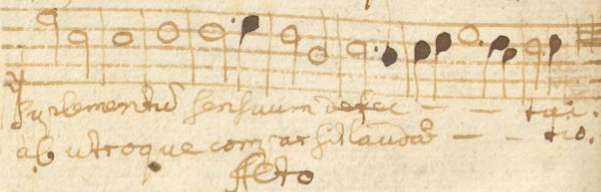 Suplementũ sensuum defec - - tui.
ab utroque com ar sit lauda͂o - - tio.